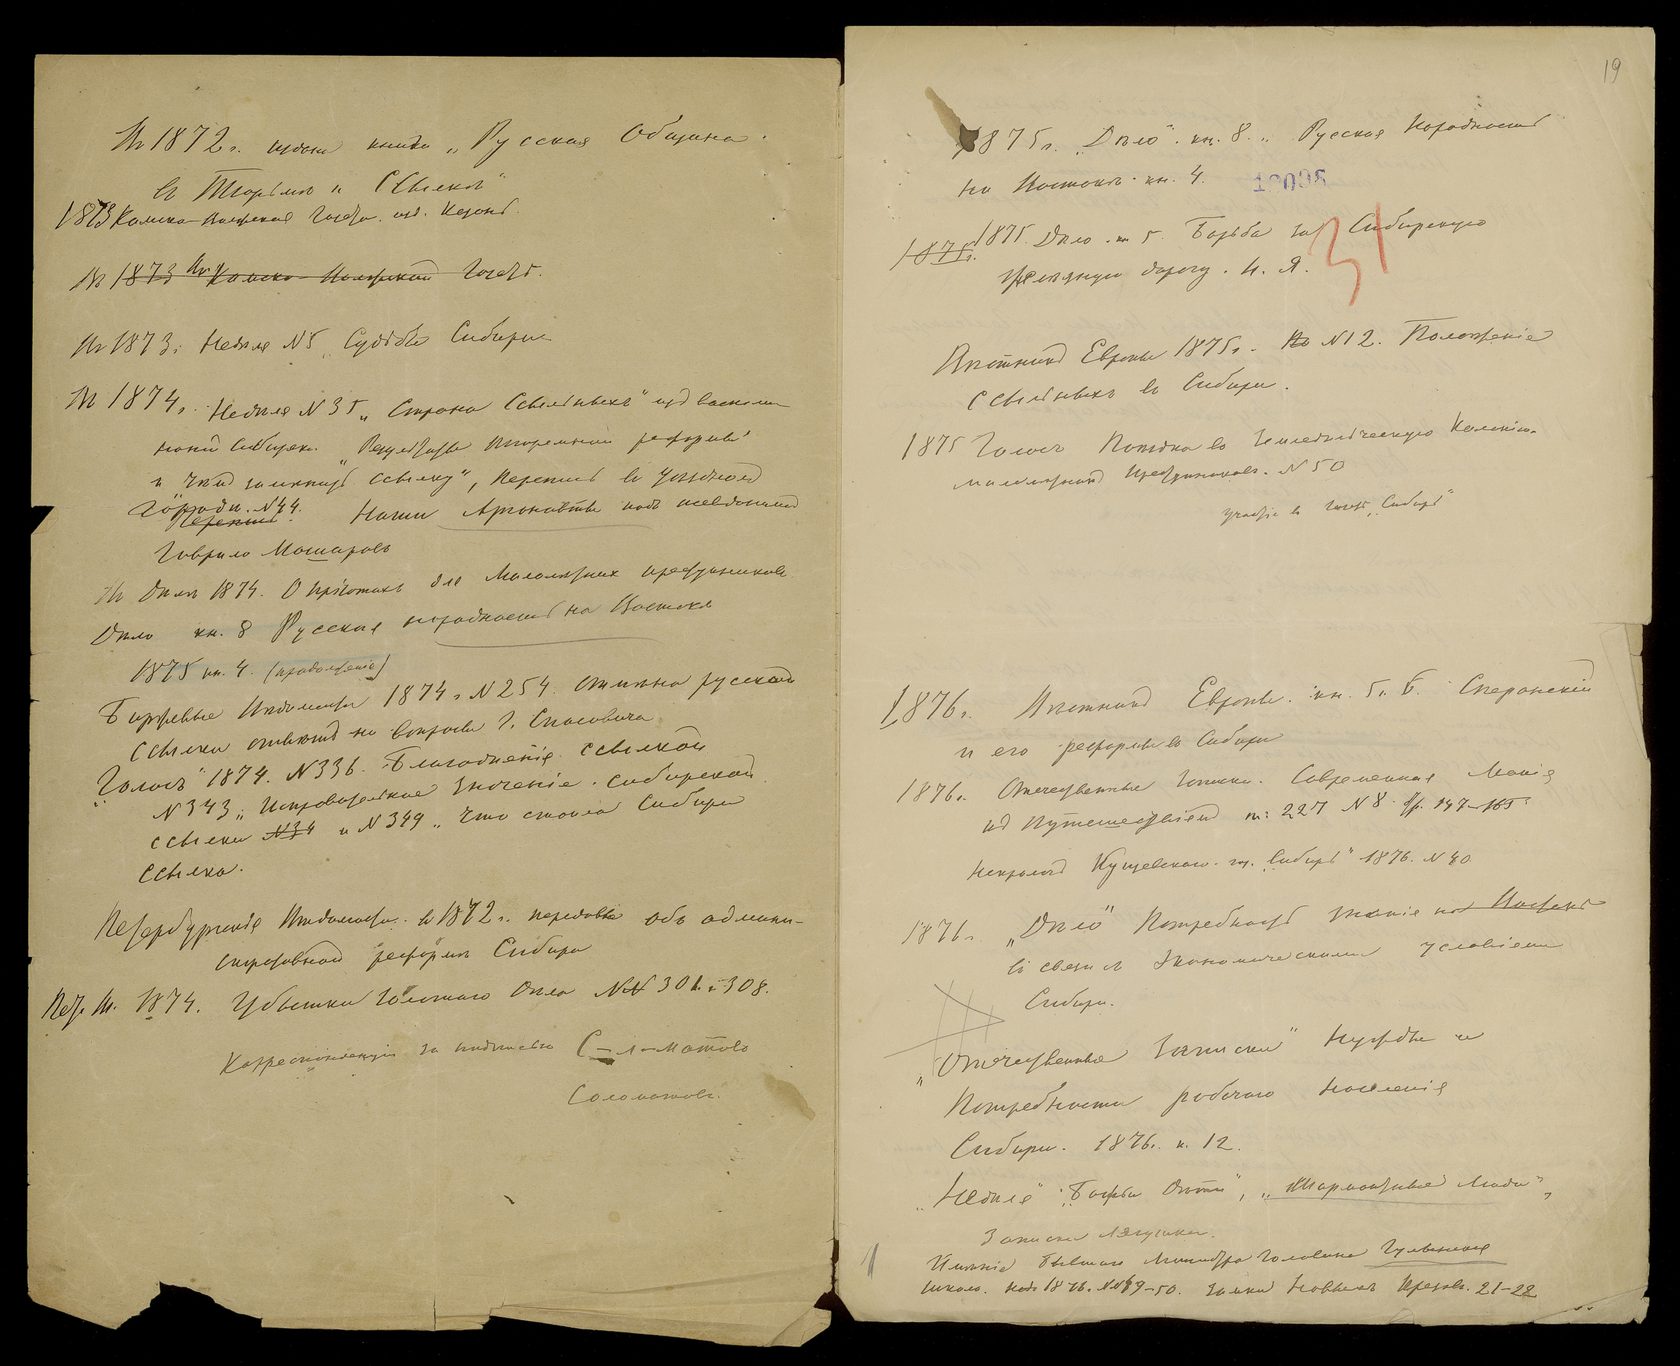 Въ 1872 г. издана книга „Русская Община
въ Тюрьмѣ и Ссылкѣ"
1873 Камско-Волжская Газета. изд. Казань
Въ 1873 Камско-Волжской Газет.
Въ 1873 г. Недѣля № 5 Судьба Сибири
Въ 1874 г. Недѣля № 35 „Страна Ссыльныхъ"
Сибиряк. „Результаты тюремной реформы"
и Чѣмъ замѣнить ссылку", Перепись въ Уѣздномъ
Городѣ. № 44. Наши Аргонавты подъ псевдонимомъ
Перепись
Гаврило Мошаровъ
Въ Дѣлѣ 1874. О пріютахъ для Малолѣтнихъ преступниковъ
Дѣло кн. 8 Русская народность на Востокѣ
1875 кн. 4. (продолженіе)
Биржевые Вѣдомости 1874 г. № 254. отмѣна русской
ссылки отвѣтъ на вопросы г. Спасовича
„Голосъ" 1874. № 336. Благодѣянія ссылкой
№ 343 „ Исправительное Значеніе сибирской
ссылки № 34 и № 349 „ Что стоила Сибири
ссылка.
Петербургскія Вѣдомости въ 1872 г. передовая объ админи-
стративной реформѣ Сибири
Пет. Вѣ. 1874. Убытки Золотаго Дѣла №№ 301 и 308.
Корреспонденціи за подписью С—л—матова
Соломатовъ.
19
1875 г. „Дѣло". кн. 8. „ Русская Народность
на Востокѣ. кн. 4.
31
1875 г. 1875. Дѣло. кн. 5. Борьба за Сибирскую
Желѣзную дорогу. Н. Я.
Вѣстникъ Европы 1875 г. № 12. Положеніе
ссыльныхъ въ Сибири.
1875 Голосъ Поѣздка въ Земледѣльческую Колонію
малолѣтнихъ преступниковъ. № 50
Участіе въ газетѣ „Сибирь"
1876 г. Вѣстникъ Европы. кн. 5 и 6. Сперанскій
и его реформы въ Сибири
1876 г. Отечественныя Записки. Современная Манія
къ Путешествіямъ т: 227 № 8. стр. 147–165.
Некрологъ Кущевскаго. газ. „Сибирь" 1876. № 40
1876 г. „Дѣло" Потребность знанія на Востокѣ
въ связи съ экономическими условіями
Сибири.
„Отечественныя Записки" Нужды и
Потребности рабочаго населенія
Сибири. 1876. к. 12.
„Недѣля" „
Записки
бывшаго Министра Головина
1876. №№ 49–50. 21–22